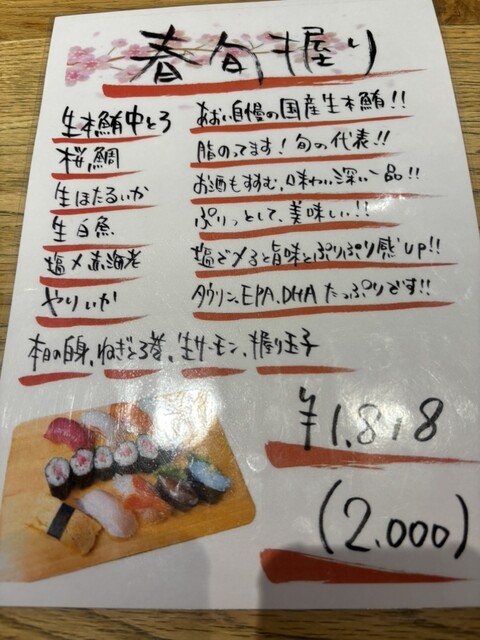 春旬握り
生本鮪中とろ あおい自慢の国産生本鮪!!
桜鯛 脂のってます!旬の代表!!
生ほたるいか お酒もすすむ、味わい深い一品!!
生白魚 ぷりっとして、美味しい!!
塩〆赤海老 塩で〆ると旨味とぷりぷり感UP!!
やりいか タウリン、EPA、DHAたっぷりです!!
本日の白身、ねぎとろ巻、生サーモン、握り玉子
¥1,818
(2,000)